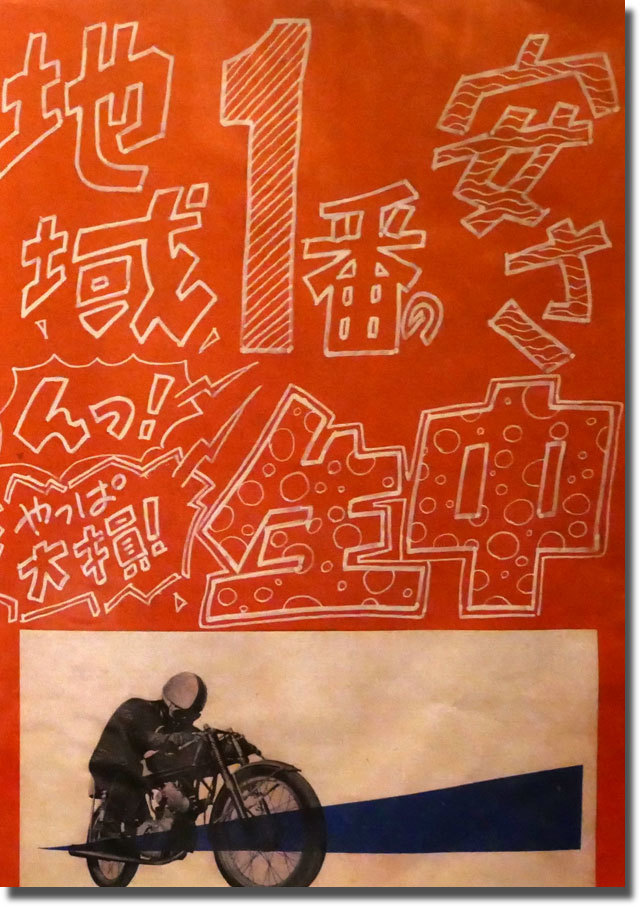 地域1番の安さ
んっ!
やっぱ
大損!
生中